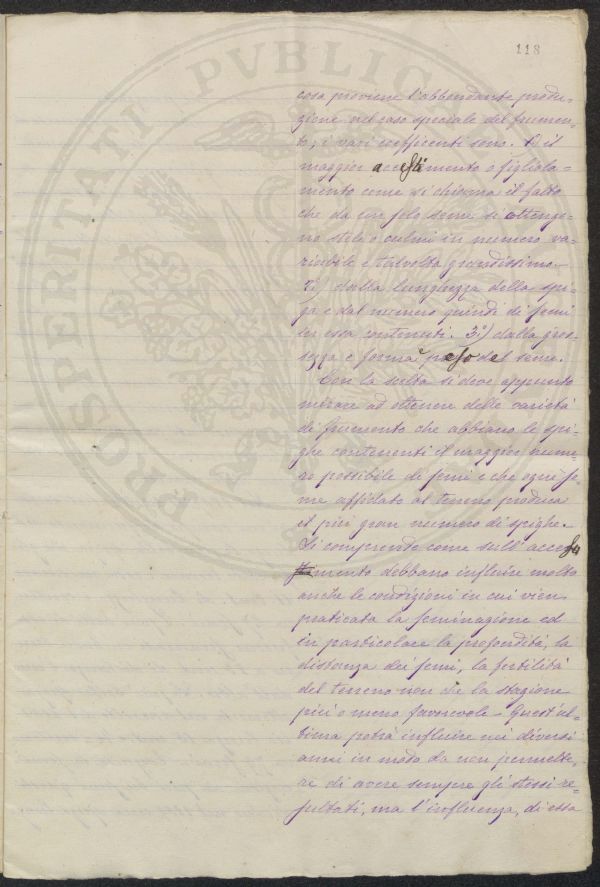 118
PROSPERITATI PVBLICAE
cosa proviene l'abbondante produ=
zione nel caso speciale del frumen=
to, i vari coefficenti sono. Dal
maggior accestimento o figliola=
mento come si chiama il fatto
che da un solo seme si ottengo=
no steli o culmi in numero va=
riabile e talvolta grandissimo.
dalla lunghezza della spi=
ga e dal numero quindi di semi
in essa contenuti. 3º) dalla gros=
sezza e forma e peso del seme.
Con la scelta si deve appunto
mirare ad ottenere delle varietà
di frumento che abbiano le spi=
ghe contenenti il maggior nume=
ro possibile di semi e che ogni se
me affidato al terreno produca
il più gran numero di spighe.
Si comprende come sull'accesti
mento debbano influire molto
anche le condizioni in cui vien
praticata la seminazione ed
in particolare la profondità, la
distanza dei semi, la fertilità
del terreno non che la stagione
più o meno favorevole. Quest'ul=
tima potrà influire nei diversi
anni in modo da non permette=
re di avere sempre gli stessi re=
sultati, ma l'influenza, di essa